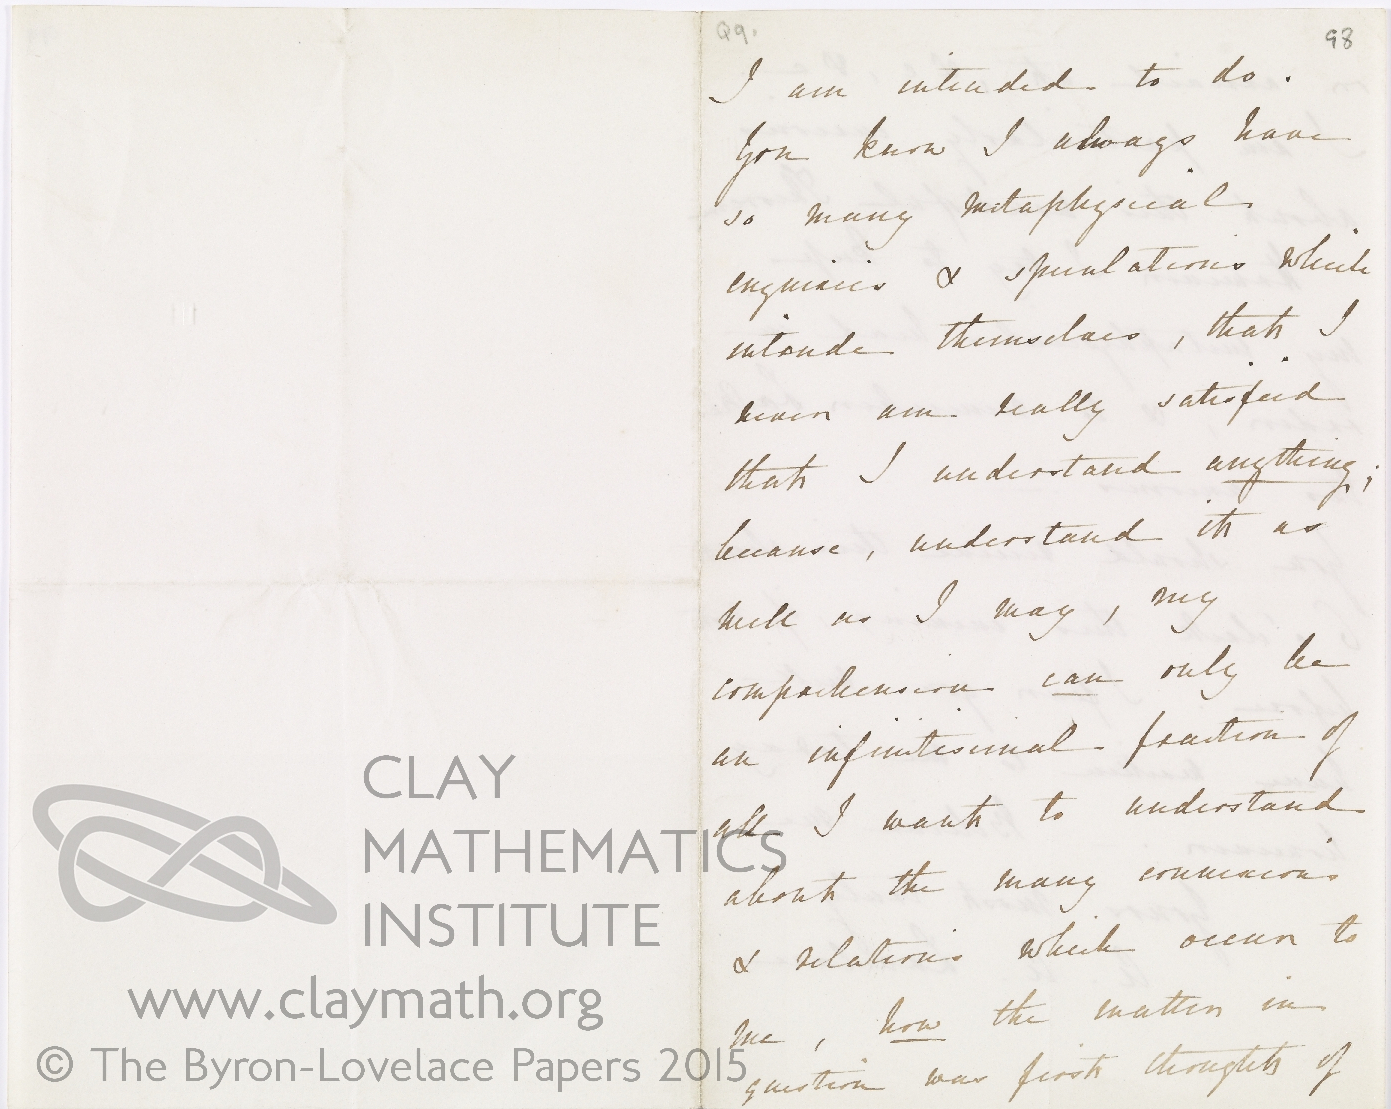 Q9.
98
I am intended to do.
You know I always have
so many metaphysical
enquiries & speculations which
intrude themselves, that I
never am really satisfied
that I understand anything;
because, understand it as
well as I may, my
comprehension can only be
an infinitesimal fraction of
all I want to understand
about the many connexions
& relations which occur to
me, how the matter in
question was first thought of
CLAY
MATHEMATICS
INSTITUTE
www.claymath.org
© The Byron-Lovelace Papers 2015